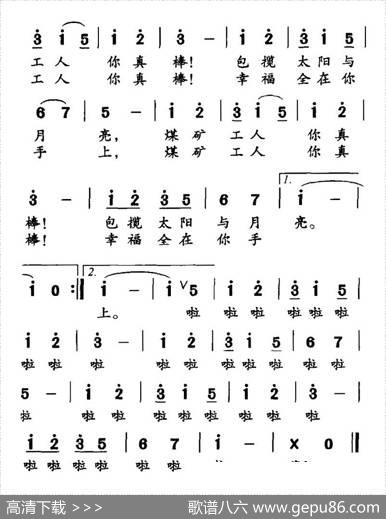 3̇ i 5 | i 2̇ | 3̇ - | i 2̇ | 3̇ i 5 |
工人 你真 棒! 包揽 太阳与
工人 你真 棒! 幸福 全在你
6 7 | 5 - | i 2̇ | 3̇ i 5 | i 2̇ |
月 亮, 煤矿 工人 你真
手 上, 煤矿 工人 你真
1.
3̇ - | i 2̇ 3̇ 5 | 6 7 | i - |
棒! 包揽太阳 与月 亮。
棒! 幸福全在 你手
2.
i 0 :‖ i - | i ∨ 5 | i 2̇ | 3̇ i 5 |
上。 啦 啦啦 啦啦啦
i 2̇ | 3̇ - | i 2̇ | 3̇ i 5 | 6 7 |
啦啦 啦 啦啦 啦啦啦 啦啦
5 - | i 2̇ | 3̇ i 5 | i 2̇ | 3̇ - |
啦 啦啦 啦啦啦 啦啦 啦
i 2̇ 3̇ 5 | 6 7 | i - | X 0 ‖
啦啦啦啦 啦啦 啦
高清下载 >>> 歌谱八六 www.gepu86.com